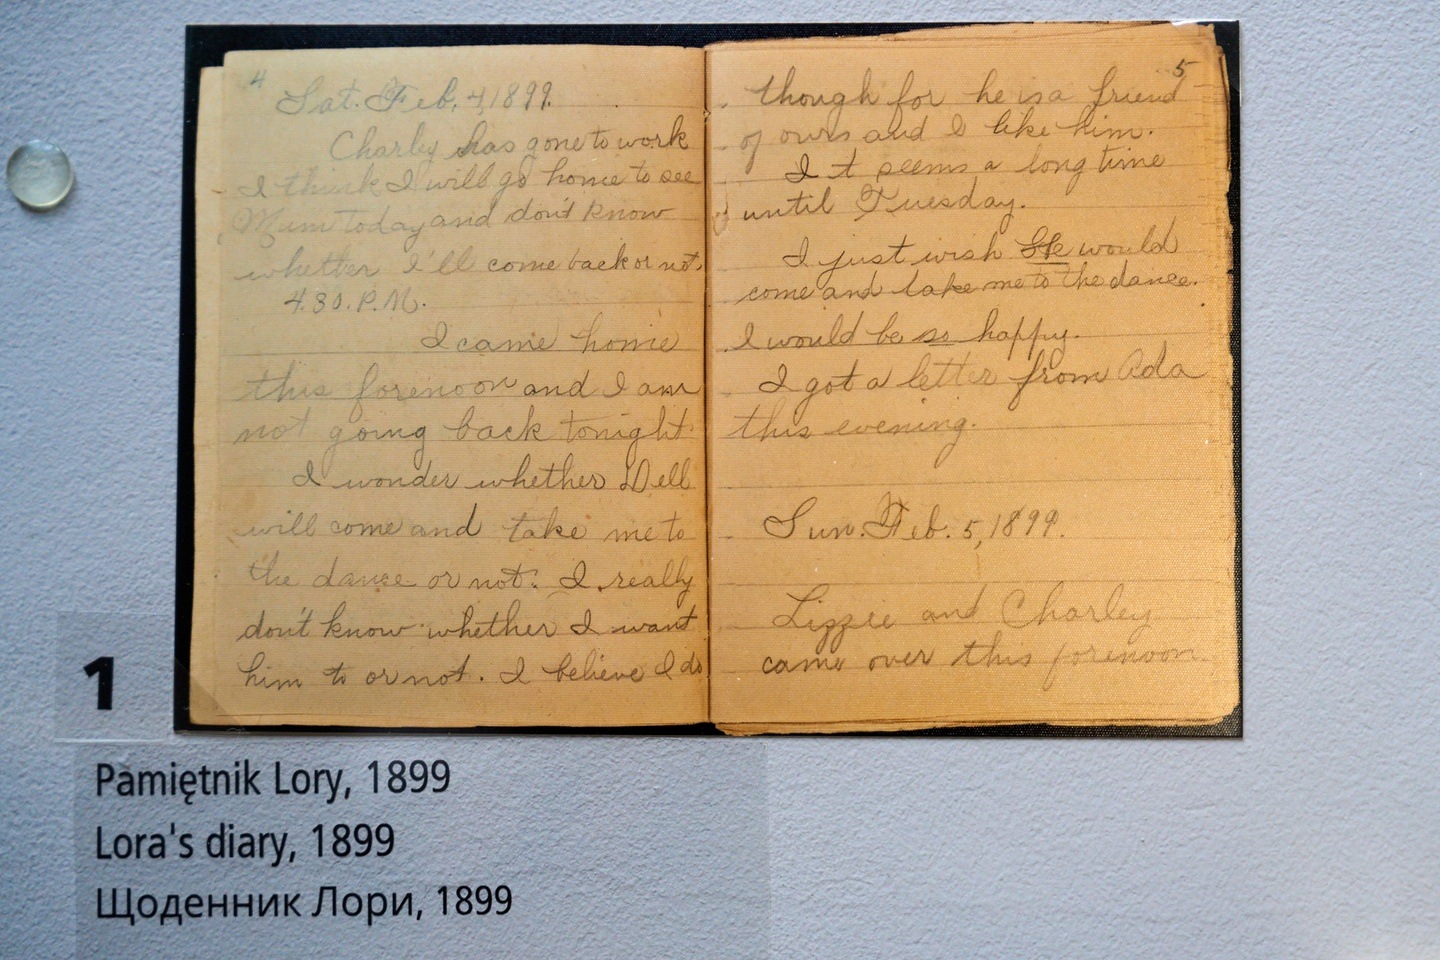 4
Sat. Feb. 4, 1899.
Charley has gone to work
I think I will go home to see
Mum today and don't know
whether I'll come back or not.
4.30. P.M.
I came home
this forenoon and I am
not going back tonight.
I wonder whether Dell
will come and take me to
the dance or not. I really
don't know whether I want
him to or not. I believe I do
5
though for he is a friend
of ours and I like him.
It seems a long time
until Tuesday.
I just wish He would
come and take me to the dance.
I would be so happy.
I got a letter from Ada
this evening.
Sun. Feb. 5, 1899.
Lizzie and Charley
came over this forenoon.
1
Pamiętnik Lory, 1899
Lora's diary, 1899
Щоденник Лори, 1899